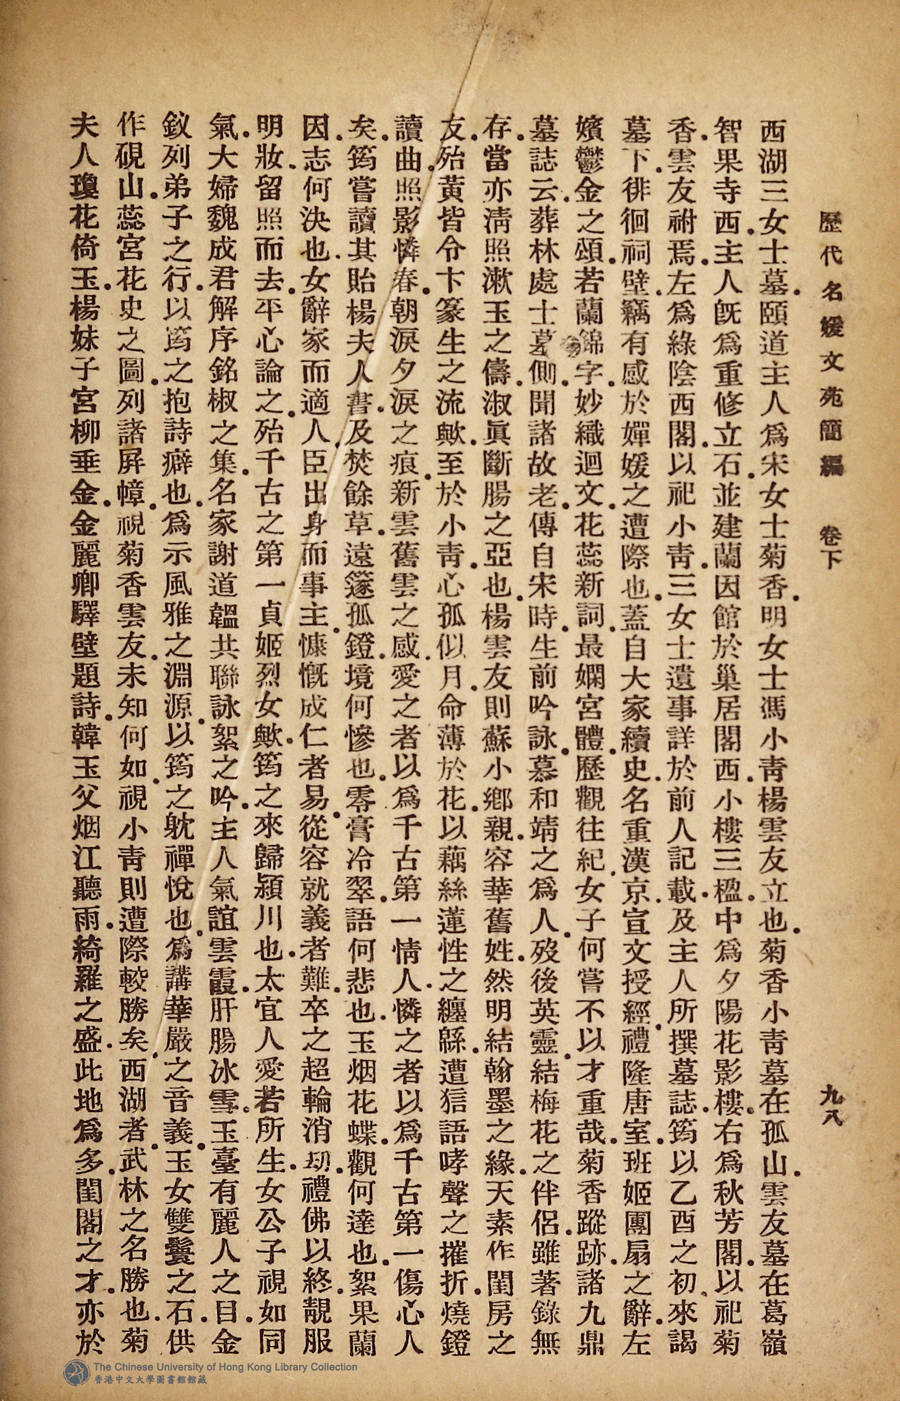 歷代名媛文苑簡編 卷下 九八
西湖三女士墓。頤道主人爲宋女士菊香。明女士馮小靑楊雲友立也。菊香小靑墓在孤山。雲友墓在葛嶺
智果寺西。主人旣爲重修立石。並建蘭因館於巢居閣西。小樓三楹。中爲夕陽花影樓。右爲秋芳閣。以祀菊
香。雲友祔焉。左爲綠陰西閣。以祀小靑。三女士遺事。詳於前人記載。及主人所撰墓誌。筠以乙酉之初。來謁
墓下。徘徊祠壁。竊有感於嬋媛之遭際也。蓋自大家續史。名重漢京。宣文授經。禮隆唐室。班姬團扇之辭。左
嬪鬱金之頌。若蘭錦字。妙織迴文。花蕊新詞。最嫻宮體。歷觀往紀。女子何嘗不以才重哉。菊香蹤跡。諸九鼎
墓誌云。葬林處士墓側。聞諸故老。傳自宋時。生前吟詠。慕和靖之爲人。歿後英靈。結梅花之伴侶。雖著錄無
存。當亦淸照漱玉之儔。淑眞斷腸之亞也。楊雲友則蘇小鄉親。容華舊姓。然明結翰墨之緣。天素作閨房之
友。殆黃皆令卞篆生之流歟。至於小靑心孤似月。命薄於花。以藕絲蓮性之纏緜。遭狺語哮聲之摧折。燒鐙
讀曲。照影憐春。朝淚夕淚之痕。新雲舊雲之感。愛之者以爲千古第一情人。憐之者以爲千古第一傷心人
矣。筠嘗讀其貽楊夫人書。及焚餘草。遠籧孤鐙。境何慘也。零膏冷翠。語何悲也。玉烟花蝶。觀何達也。絮果蘭
因。志何決也。女辭家而適人。臣出身而事主。慷慨成仁者易。從容就義者難。卒之超輪消刧。禮佛以終。靚服
明妝。留照而去。平心論之。殆千古之第一貞姬烈女歟。筠之來歸潁川也。太宜人愛若所生。女公子視如同
氣。大婦魏成君。解序銘椒之集。名家謝道韞。共聯詠絮之吟。主人氣誼雲霞。肝腸冰雪。玉臺有麗人之目。金
釵列弟子之行。以筠之抱詩癖也。爲示風雅之淵源。以筠之躭禪悅也。爲講華嚴之音義。玉女雙鬟之石。供
作硯山。蕊宮花史之圖。列諸屛幛。視菊香雲友。未知何如。視小靑則遭際較勝矣。西湖者。武林之名勝也。菊
夫人瓊花倚玉。楊妹子宮柳垂金。金麗卿驛壁題詩。韓玉父烟江聽雨。綺羅之盛。此地爲多。閨閣之才。亦於
The Chinese University of Hong Kong Library Collection
香港中文大學圖書館館藏